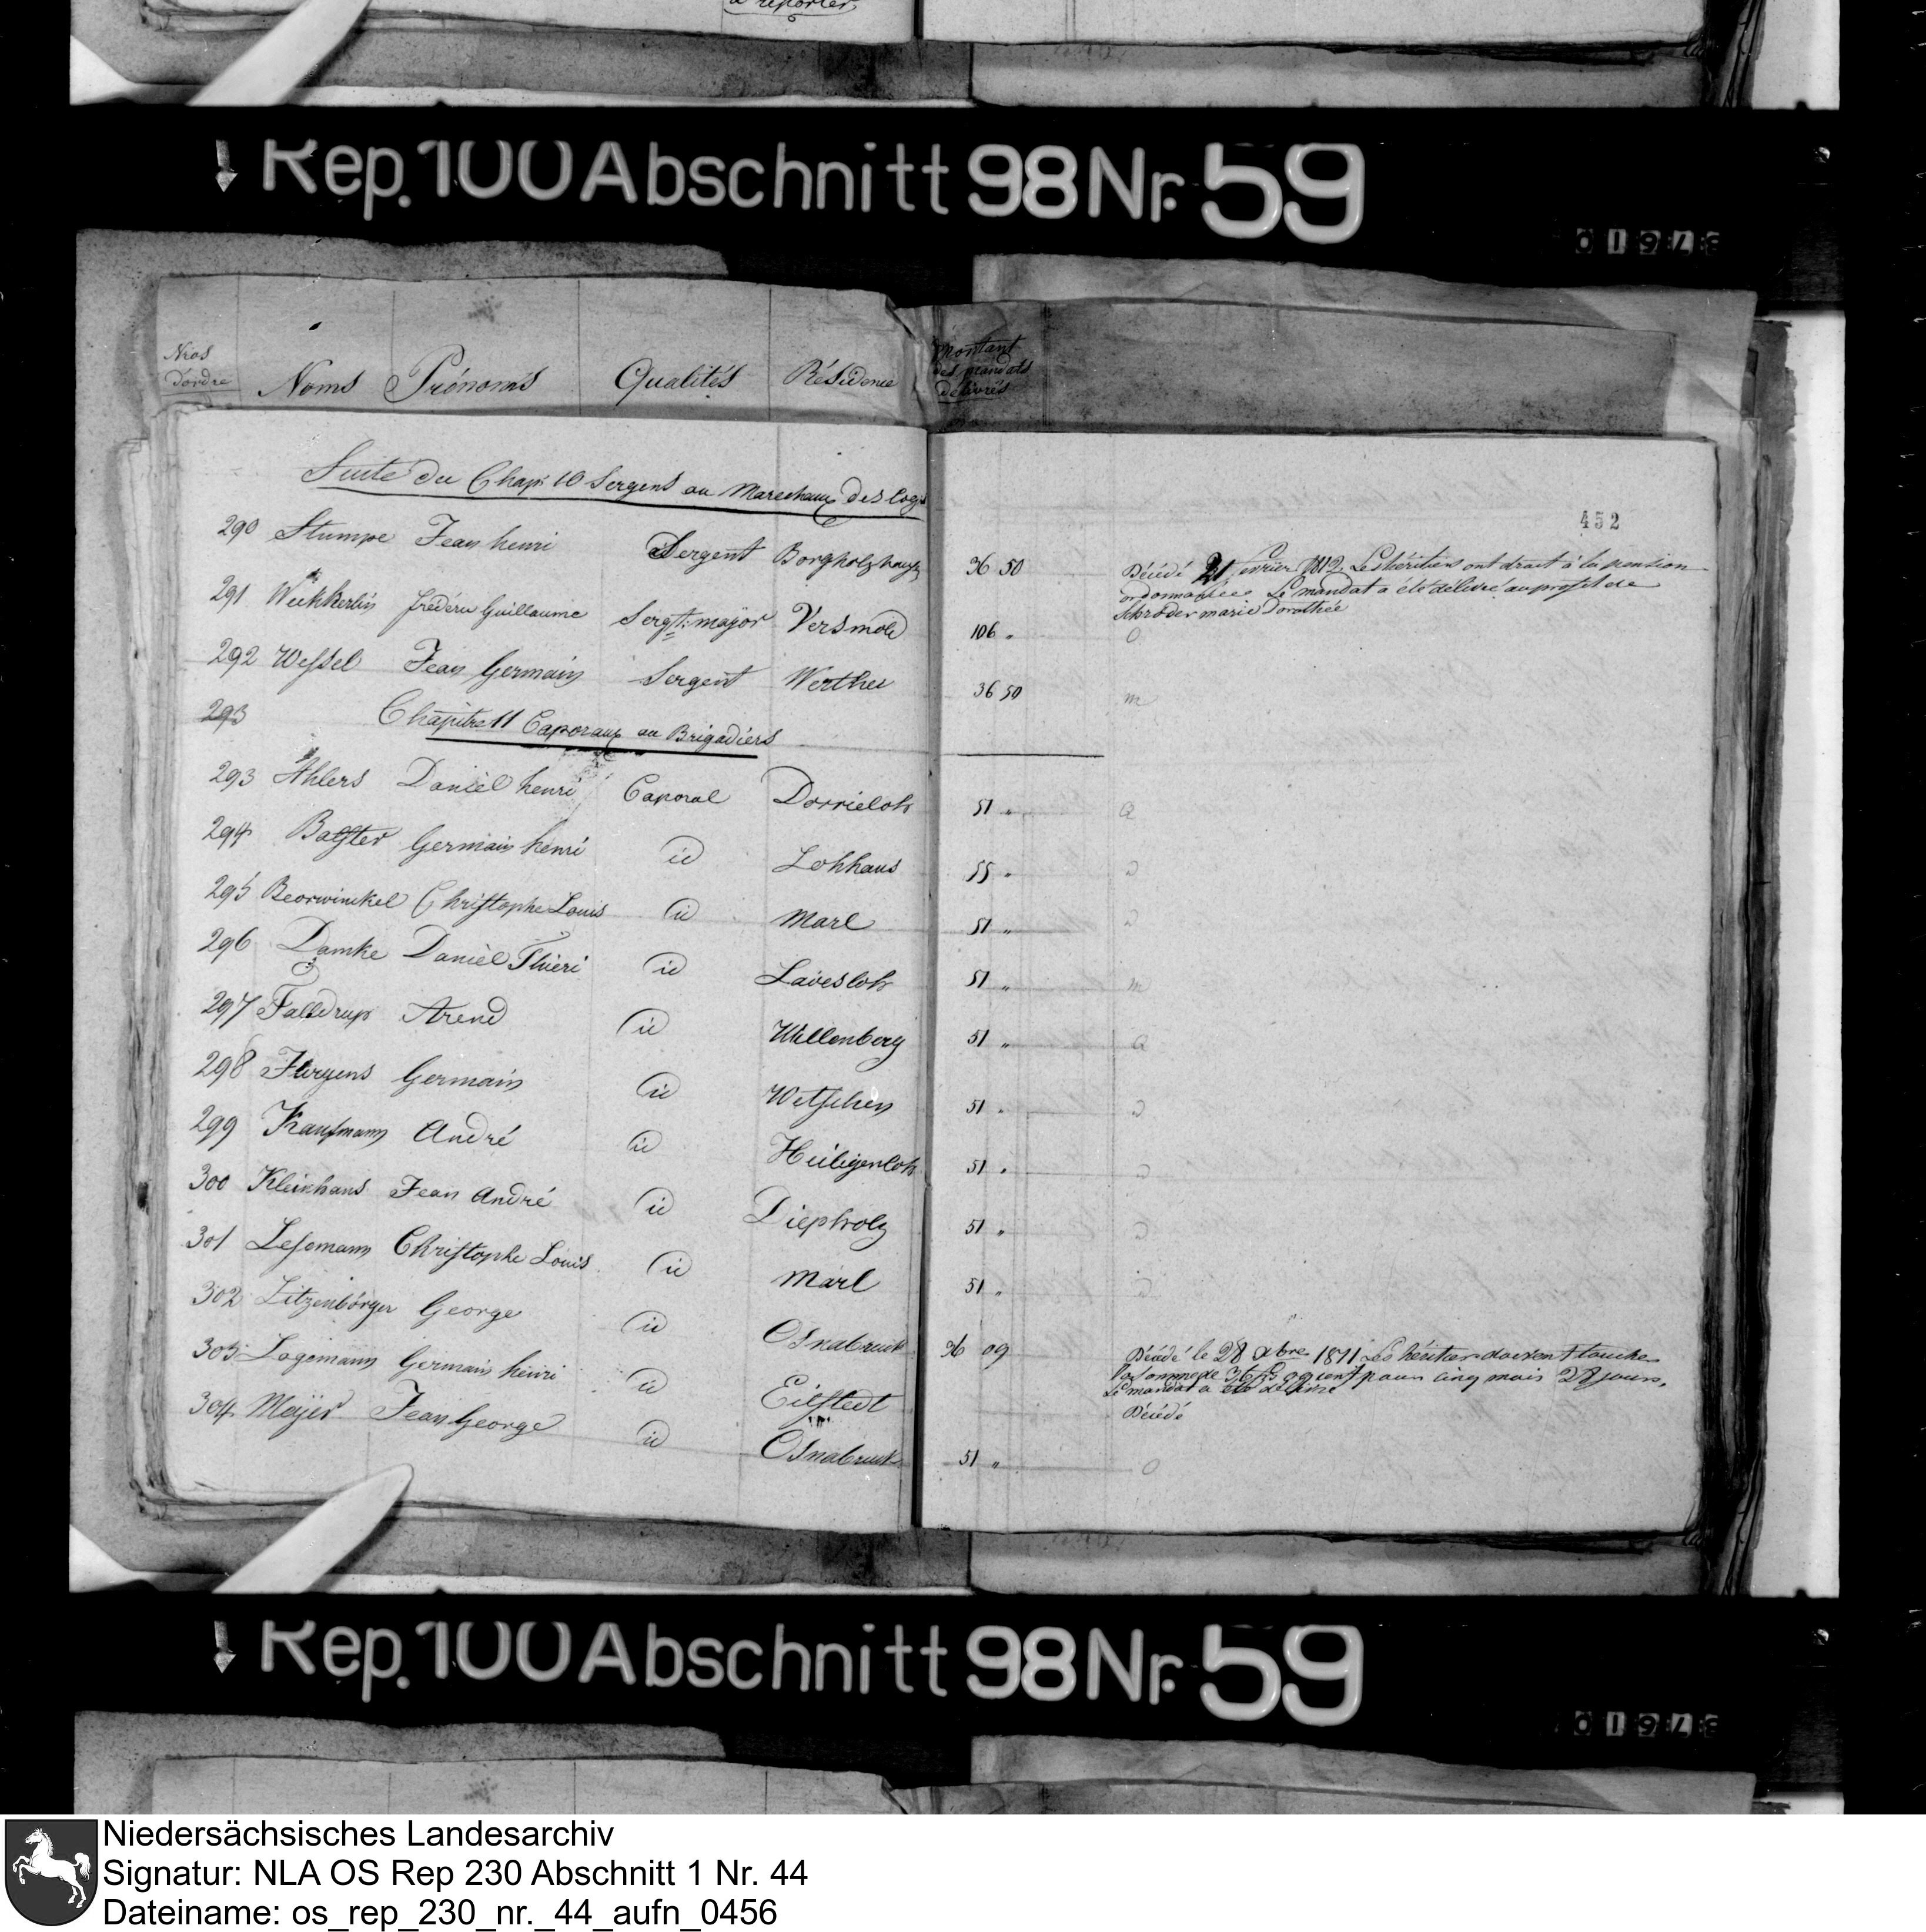 à reporter
Rep. 100 Abschnitt 98 Nr. 59
Nros d'ordre Noms Prénoms Qualités Résidence Montant des mandats délivrés
Suite du Chap. 10 Sergens ou Marechaux des logis
452
290 Stumpe Jean henri Sergent Borgholzhausen 36 50 Décédé 21 fevrier 1812. Les héritiers ont droit à la pension
ordonnancée Le mandat a été délivré au profit de
Schroder marie Dorothée
291 Weckherlin fréderic Guillaume Sergt. major Versmold 106 "
292 Wessel Jean Germain Sergent Werther 36 50
293 Chapitre 11 Caporaux ou Brigadiers
293 Ahlers Daniel henri Caporal Dorrieloh 51 "
294 Balster Germain henri id Lohhaus 55 "
295 Beorwinckel Christophe Louis id Marl 51 "
296 Damke Daniel Thieri id Lavesloh 51 "
297 Falldrup Arend id Willenberg 51 "
298 Germain id Wetschen 51 "
299 Kaufmann André id Heiligenloh 51 "
300 Kleinhans Jean André id Diepholz 51 "
301 Lesemann Christophe Louis id Marl 51 "
302 Litzenbörger George id Osnabruck 36 09 Décédé le 28 Xbre 1811 Les héritiers doivent toucher
la somme de 36 fs 09 cent pour cinq mois 28 jours.
Le mandat a été délivré
303 Logemann Germain henri id Eilstedt Décédé
304 Meÿer Jean George id Osnabruck 51 "
Rep. 100 Abschnitt 98 Nr. 59
Niedersächsisches Landesarchiv
Signatur: NLA OS Rep 230 Abschnitt 1 Nr. 44
Dateiname: os_rep_230_nr._44_aufn_0456